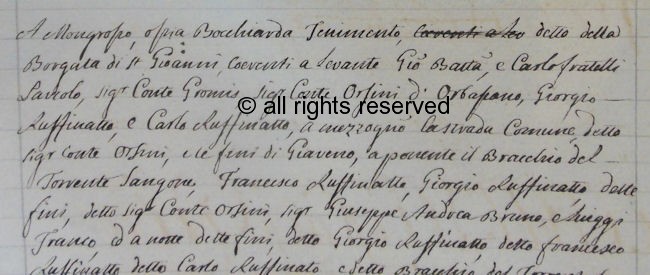 A Mongropo, ossia Bocchiarda Tenimento, coerenti a Lev detto della
Borgata di St Gioanni, coerenti a Levante Gio Batta, e Carlo fratelli
sigr Conte Gromis, sigr Conte Orsini d' Orbassano, Giorgio
© all rights reserved
Ruffinatto, e Carlo Ruffinatto, a mezzogno la strada Comune, detto
sigr Conte Orsini, e le fini di Giaveno, a ponente il Bracchio del
Torrente Sangone, Francesco Ruffinatto, Giorgio Ruffinatto dette
fini, detto sigr Conte Orsini, sigr Giuseppe Andrea Bruno, e
Franco ed a notte dette fini, detto Giorgio Ruffinatto detto Francesco
Ruffinatto detto Carlo Ruffinato e detto Bracchio del